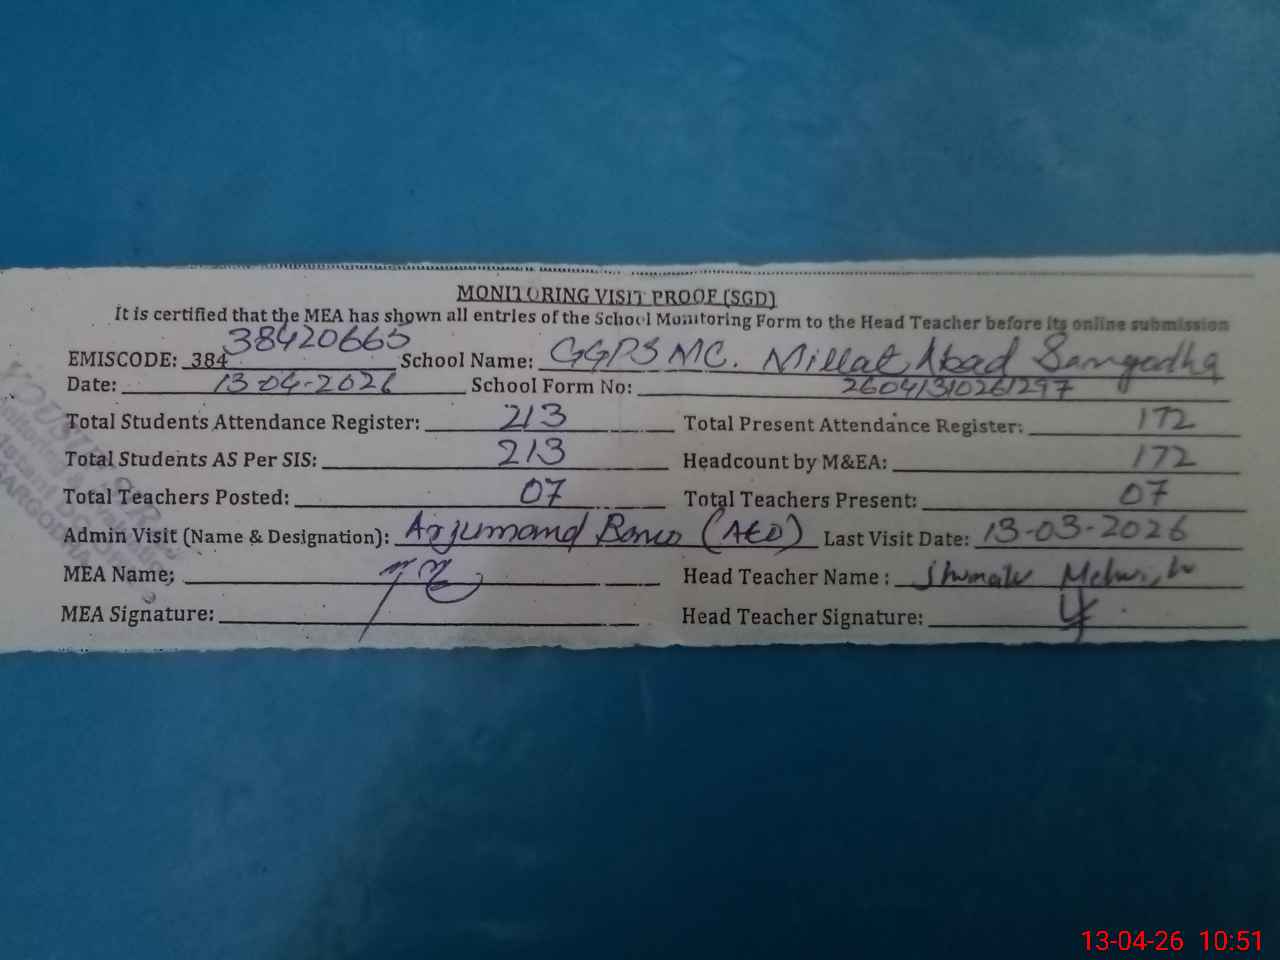 MONITORING VISIT PROOF (SGD)
It is certified that the MEA has shown all entries of the School Monitoring Form to the Head Teacher before its online submission
EMISCODE: 384 38420665 School Name: GGPS MC. Millat Abad Sargodha
Date: 13-04-2026 School Form No: 26041310261297
Total Students Attendance Register: 213 Total Present Attendance Register: 172
Total Students AS Per SIS: 213 Headcount by M&EA: 172
Total Teachers Posted: 07 Total Teachers Present: 07
Admin Visit (Name & Designation): Arjumand Bano (AEO) Last Visit Date: 13-03-2026
MEA Name;
Head Teacher Name :
MEA Signature:
Head Teacher Signature:
SARGODHA
13-04-26 10:51